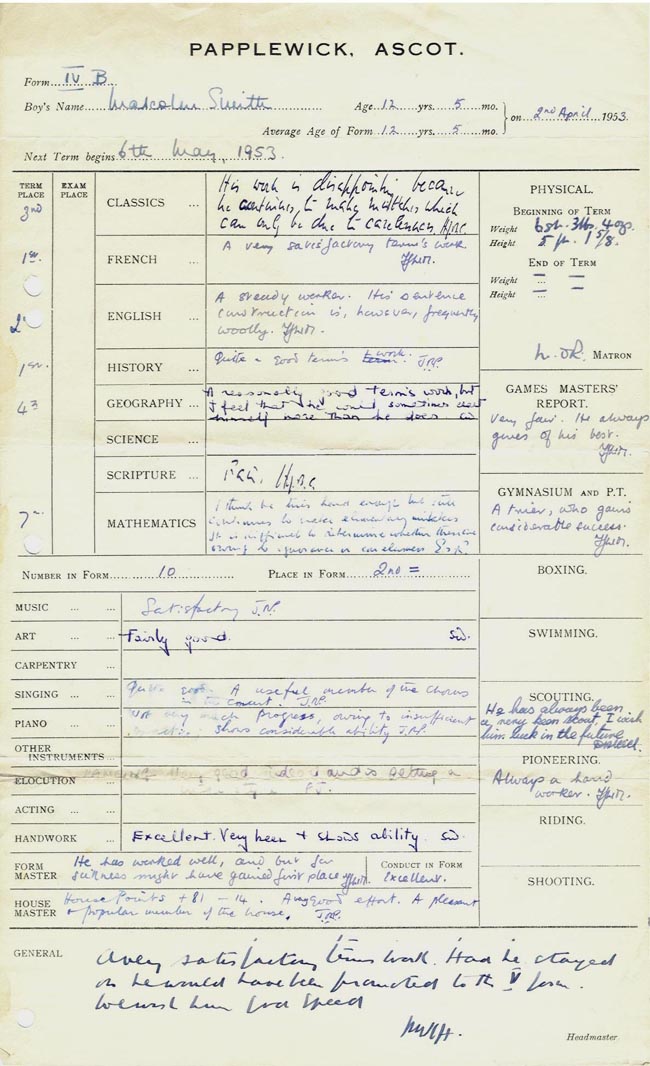 PAPPLEWICK, ASCOT.
Form IV B
Boy's Name Malcolm Smith Age 12 yrs. 5 mo.
Average Age of Form 12 yrs. 5 mo.
on 2nd April 1953
Next Term begins 6th May 1953.
TERM PLACE
EXAM PLACE
CLASSICS ...
His work is disappointing because
he continues to make mistakes which
can only be due to carelessness.
1st
FRENCH ...
A very satisfactory term's work
ENGLISH ...
A steady worker. His sentence
construction is, however, frequently
woolly.
1st
HISTORY ...
Quite a good term's work. J.R.P.
4th
GEOGRAPHY ...
A reasonably good term's work, but
I feel that he could sometimes exert
himself more than he does SW
SCIENCE ...
SCRIPTURE ...
Fair.
7
MATHEMATICS
I think he tries hard enough but still
continues to make elementary mistakes
It is difficult to determine whether these are
owing to ignorance or carelessness
PHYSICAL.
BEGINNING OF TERM
Weight 6st. 3lbs. 4ozs.
Height 5 ft. 1 5/8.
END OF TERM
Weight ...
Height ...
MATRON
GAMES MASTERS' REPORT.
Very fair. He always
gives of his best.
GYMNASIUM AND P.T.
A trier, who gains
considerable success.
NUMBER IN FORM 10 PLACE IN FORM 2nd =
MUSIC ... ...
Satisfactory J.R.P.
ART ... ...
Fairly good. SW.
CARPENTRY ...
SINGING ... ...
Quite good. A useful member of the chorus
in the concert. J.R.P.
PIANO ...
Not very much progress, owing to insufficient
Shows considerable ability J.R.P.
OTHER INSTRUMENTS ...
ELOCUTION ...
ACTING ...
HANDWORK ...
Excellent. Very keen + shows ability. SW.
BOXING.
SWIMMING.
SCOUTING.
He has always been
a very keen scout, I wish
him luck in the future
PIONEERING.
Always a hard
worker.
RIDING.
SHOOTING.
FORM MASTER
He has worked well, and but for
sickness might have gained first place
CONDUCT IN FORM
Excellent.
HOUSE MASTER
House Points +81 -14. A very good effort. A pleasant
+ popular member of the house. J.R.P.
GENERAL
A very satisfactory terms work. Had he stayed
on he would have been promoted to the V form.
We wish him God speed
Headmaster